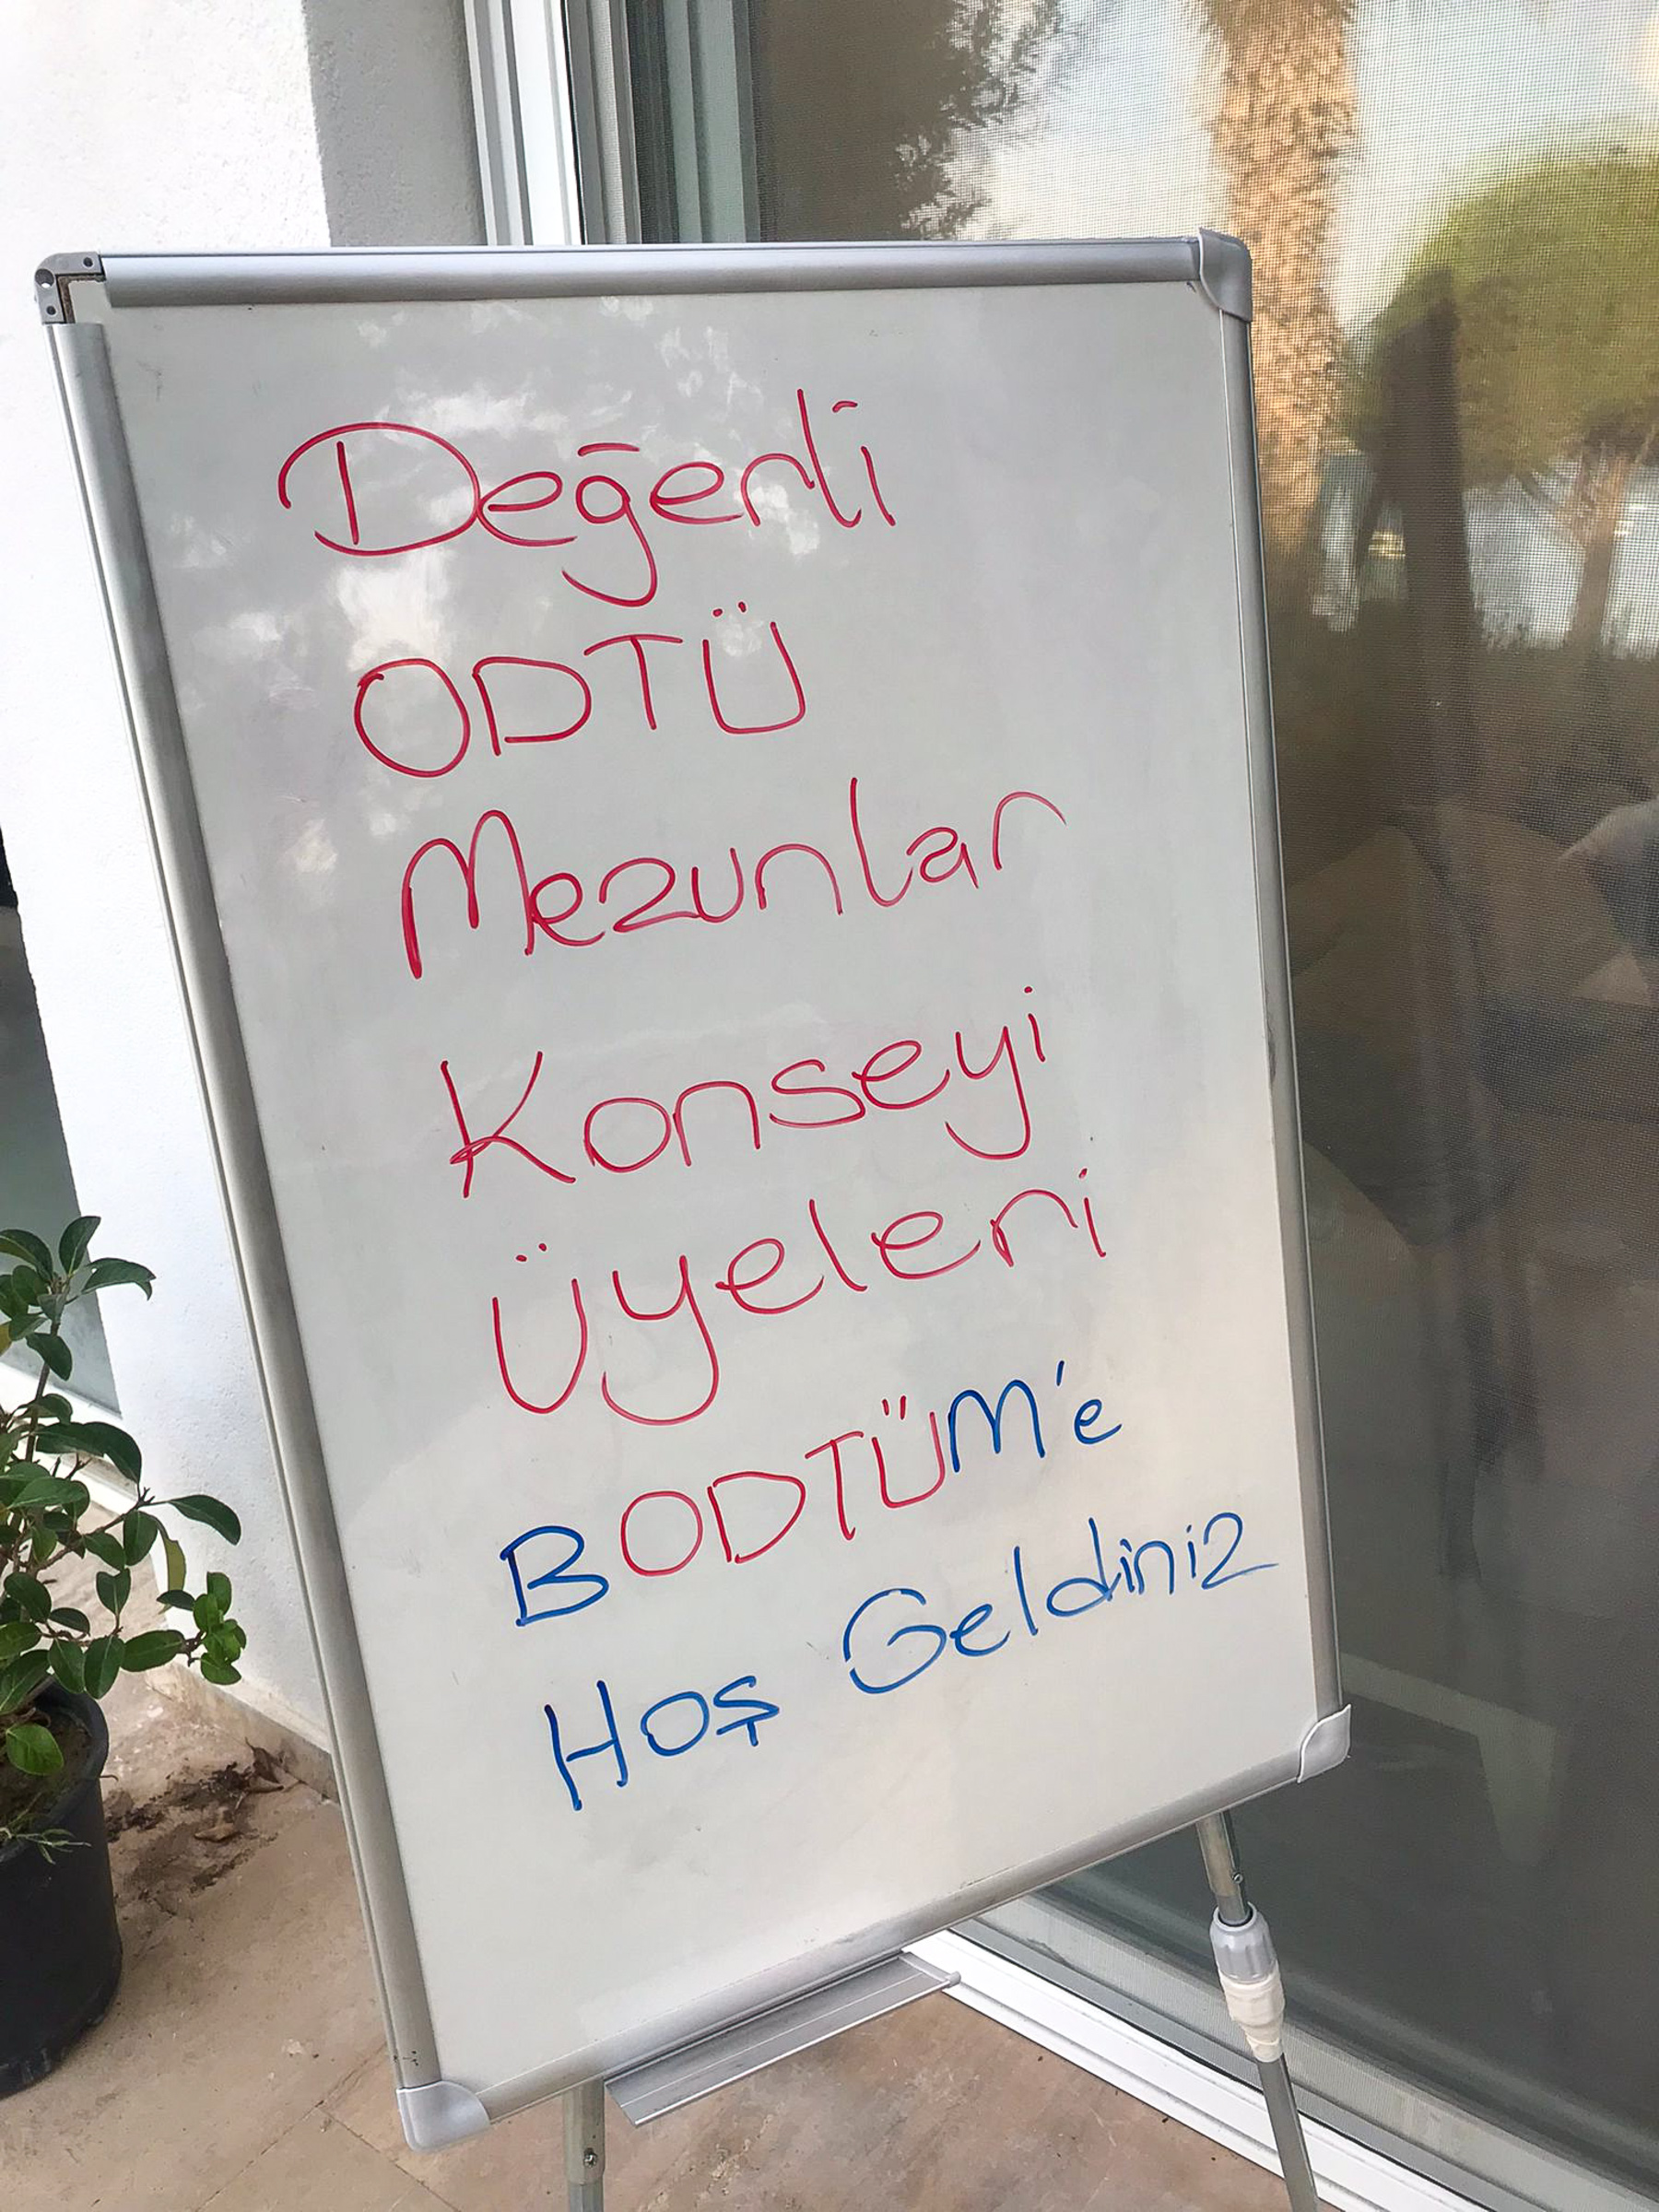 Değerli
ODTÜ
Mezunlar
Konseyi
Üyeleri
BODTÜM'e
Hoş Geldiniz